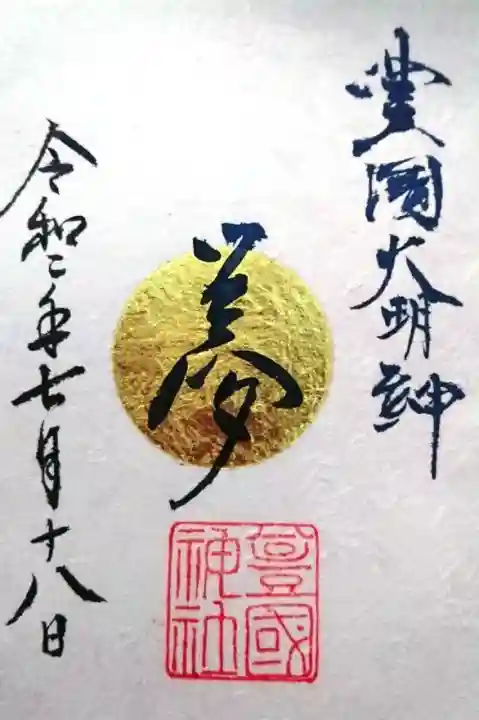 豊國大明神
夢
豊國
神社
令和二年七月十八日